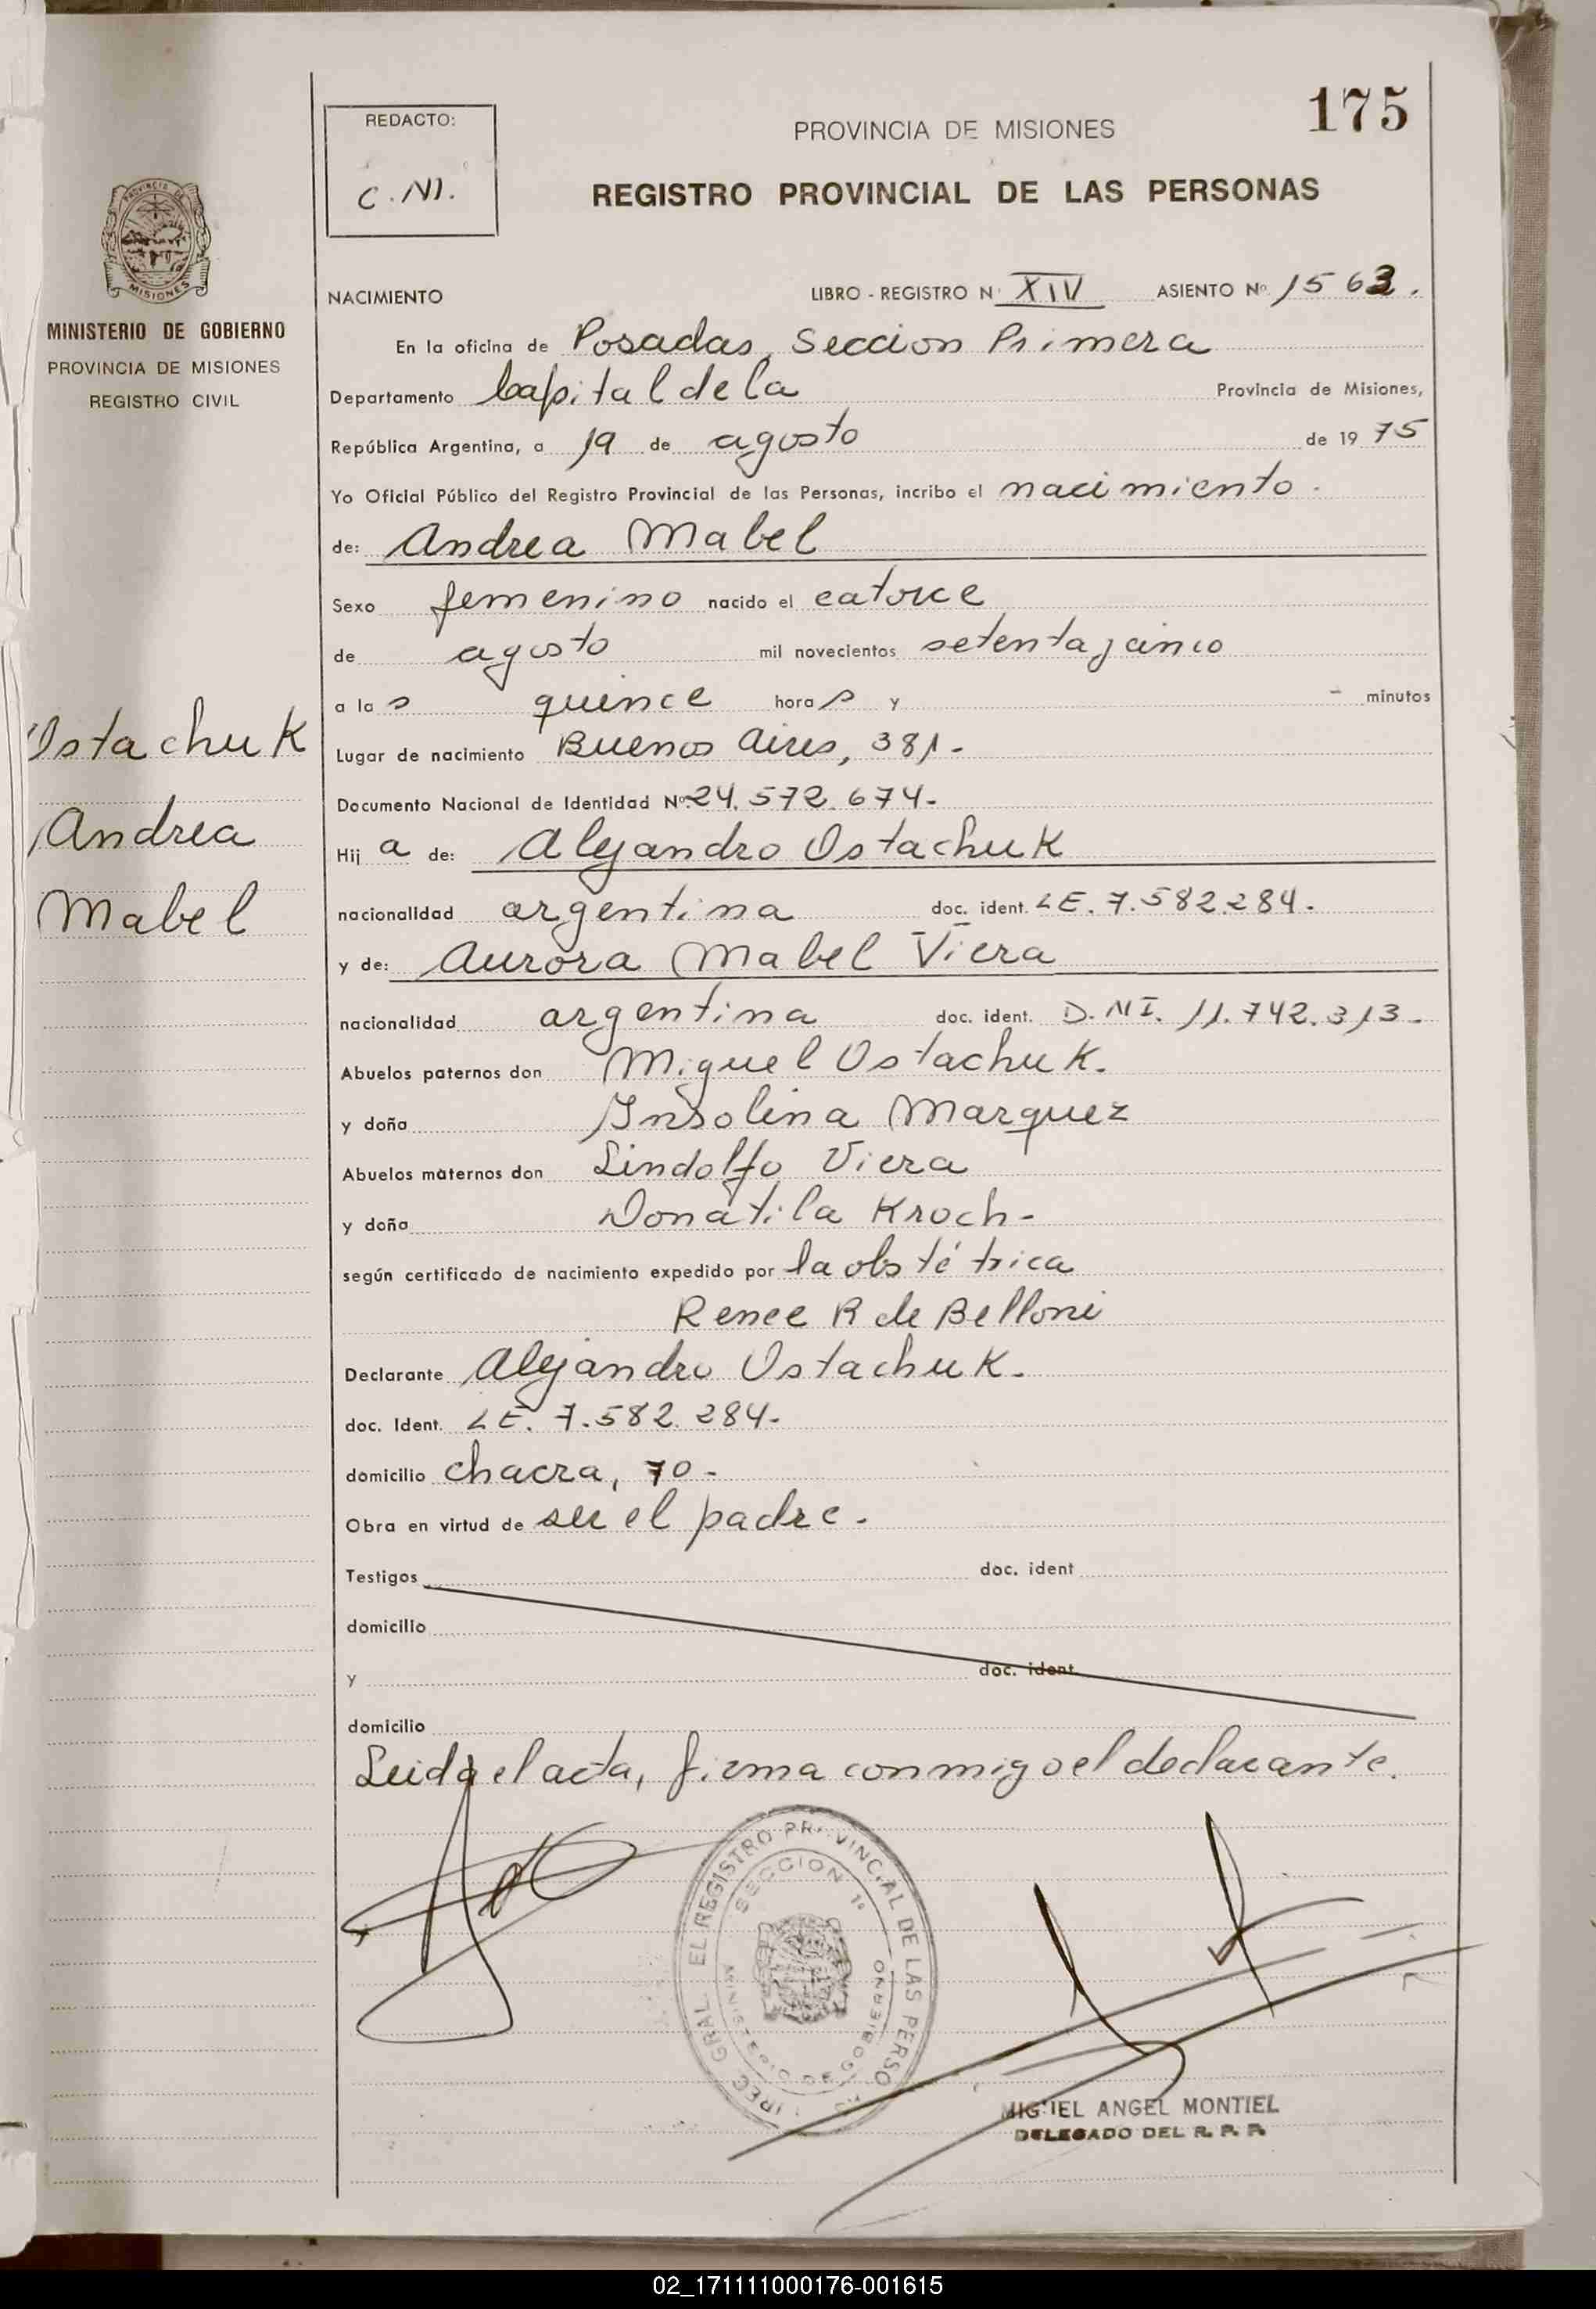 175
REDACTO:
C.NI.
PROVINCIA DE MISIONES
REGISTRO PROVINCIAL DE LAS PERSONAS
PROVINCIA DE MISIONES
MINISTERIO DE GOBIERNO
PROVINCIA DE MISIONES
REGISTRO CIVIL
Ostachuk
Andrea
Mabel
NACIMIENTO LIBRO - REGISTRO N° XIV ASIENTO Nº 1563.
En la oficina de Posadas, Seccion Primera
Departamento Capital de la Provincia de Misiones,
República Argentina, a 19 de agosto de 1975
Yo Oficial Público del Registro Provincial de las Personas, incribo el nacimiento.
de: Andrea Mabel
Sexo femenino nacido el catorce
de agosto mil novecientos setenta y cinco
a las quince horas y - minutos
Lugar de nacimiento Buenos Aires, 381-
Documento Nacional de Identidad Nº 24.572.674-
Hija de: Alejandro Ostachuk
nacionalidad argentina doc. ident. LE. 7.582.284.
y de: Aurora Mabel Viera
nacionalidad argentina doc. ident. D.NI. 11.742.313-
Abuelos paternos don Miguel Ostachuk.
y doña Insolina Marquez
Abuelos maternos don Lindolfo Viera
y doña Donatila Kroch-
según certificado de nacimiento expedido por la obstétrica
Renee R de Belloni
Declarante Alejandro Ostachuk.
doc. Ident. LE. 7.582.284-
domicilio chacra, 70-
Obra en virtud de ser el padre.
Testigos doc. ident
domicilio
y doc. ident
domicilio
Leida el acta, firma conmigo el declarante.
EL REGISTRO PROVINCIAL DE LAS PERSO
SECCION 1º
MINISTERIO DE GOBIERNO
MIGUEL ANGEL MONTIEL
DELEGADO DEL R. P. P.
02_171111000176-001615